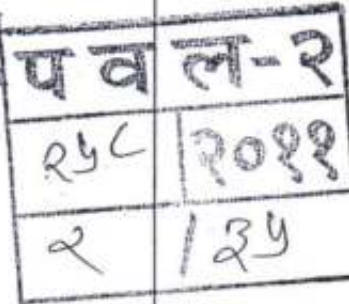 पवल-२
२५८ २०११
२ / ३५